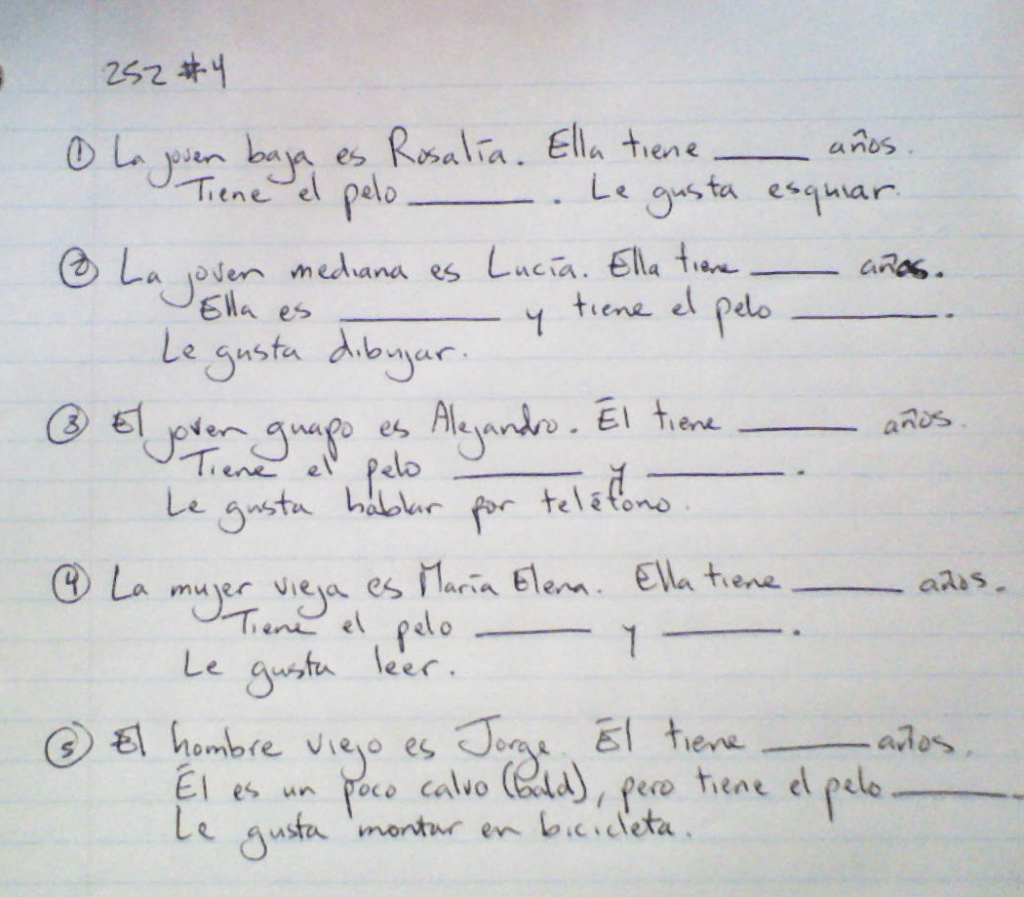 252 #4
① La joven baja es Rosalía. Ella tiene ____ años.
Tiene el pelo ____. Le gusta esquiar.
② La joven mediana es Lucía. Ella tiene ____ años.
Ella es ____ y tiene el pelo ____.
Le gusta dibujar.
③ El joven guapo es Alejandro. Él tiene ____ años.
Tiene el pelo ____ y ____.
Le gusta hablar por teléfono.
④ La mujer vieja es María Elena. Ella tiene ____ años.
Tiene el pelo ____ y ____.
Le gusta leer.
⑤ El hombre viejo es Jorge. Él tiene ____ años.
Él es un poco calvo (bald), pero tiene el pelo ____.
Le gusta montar en bicicleta.